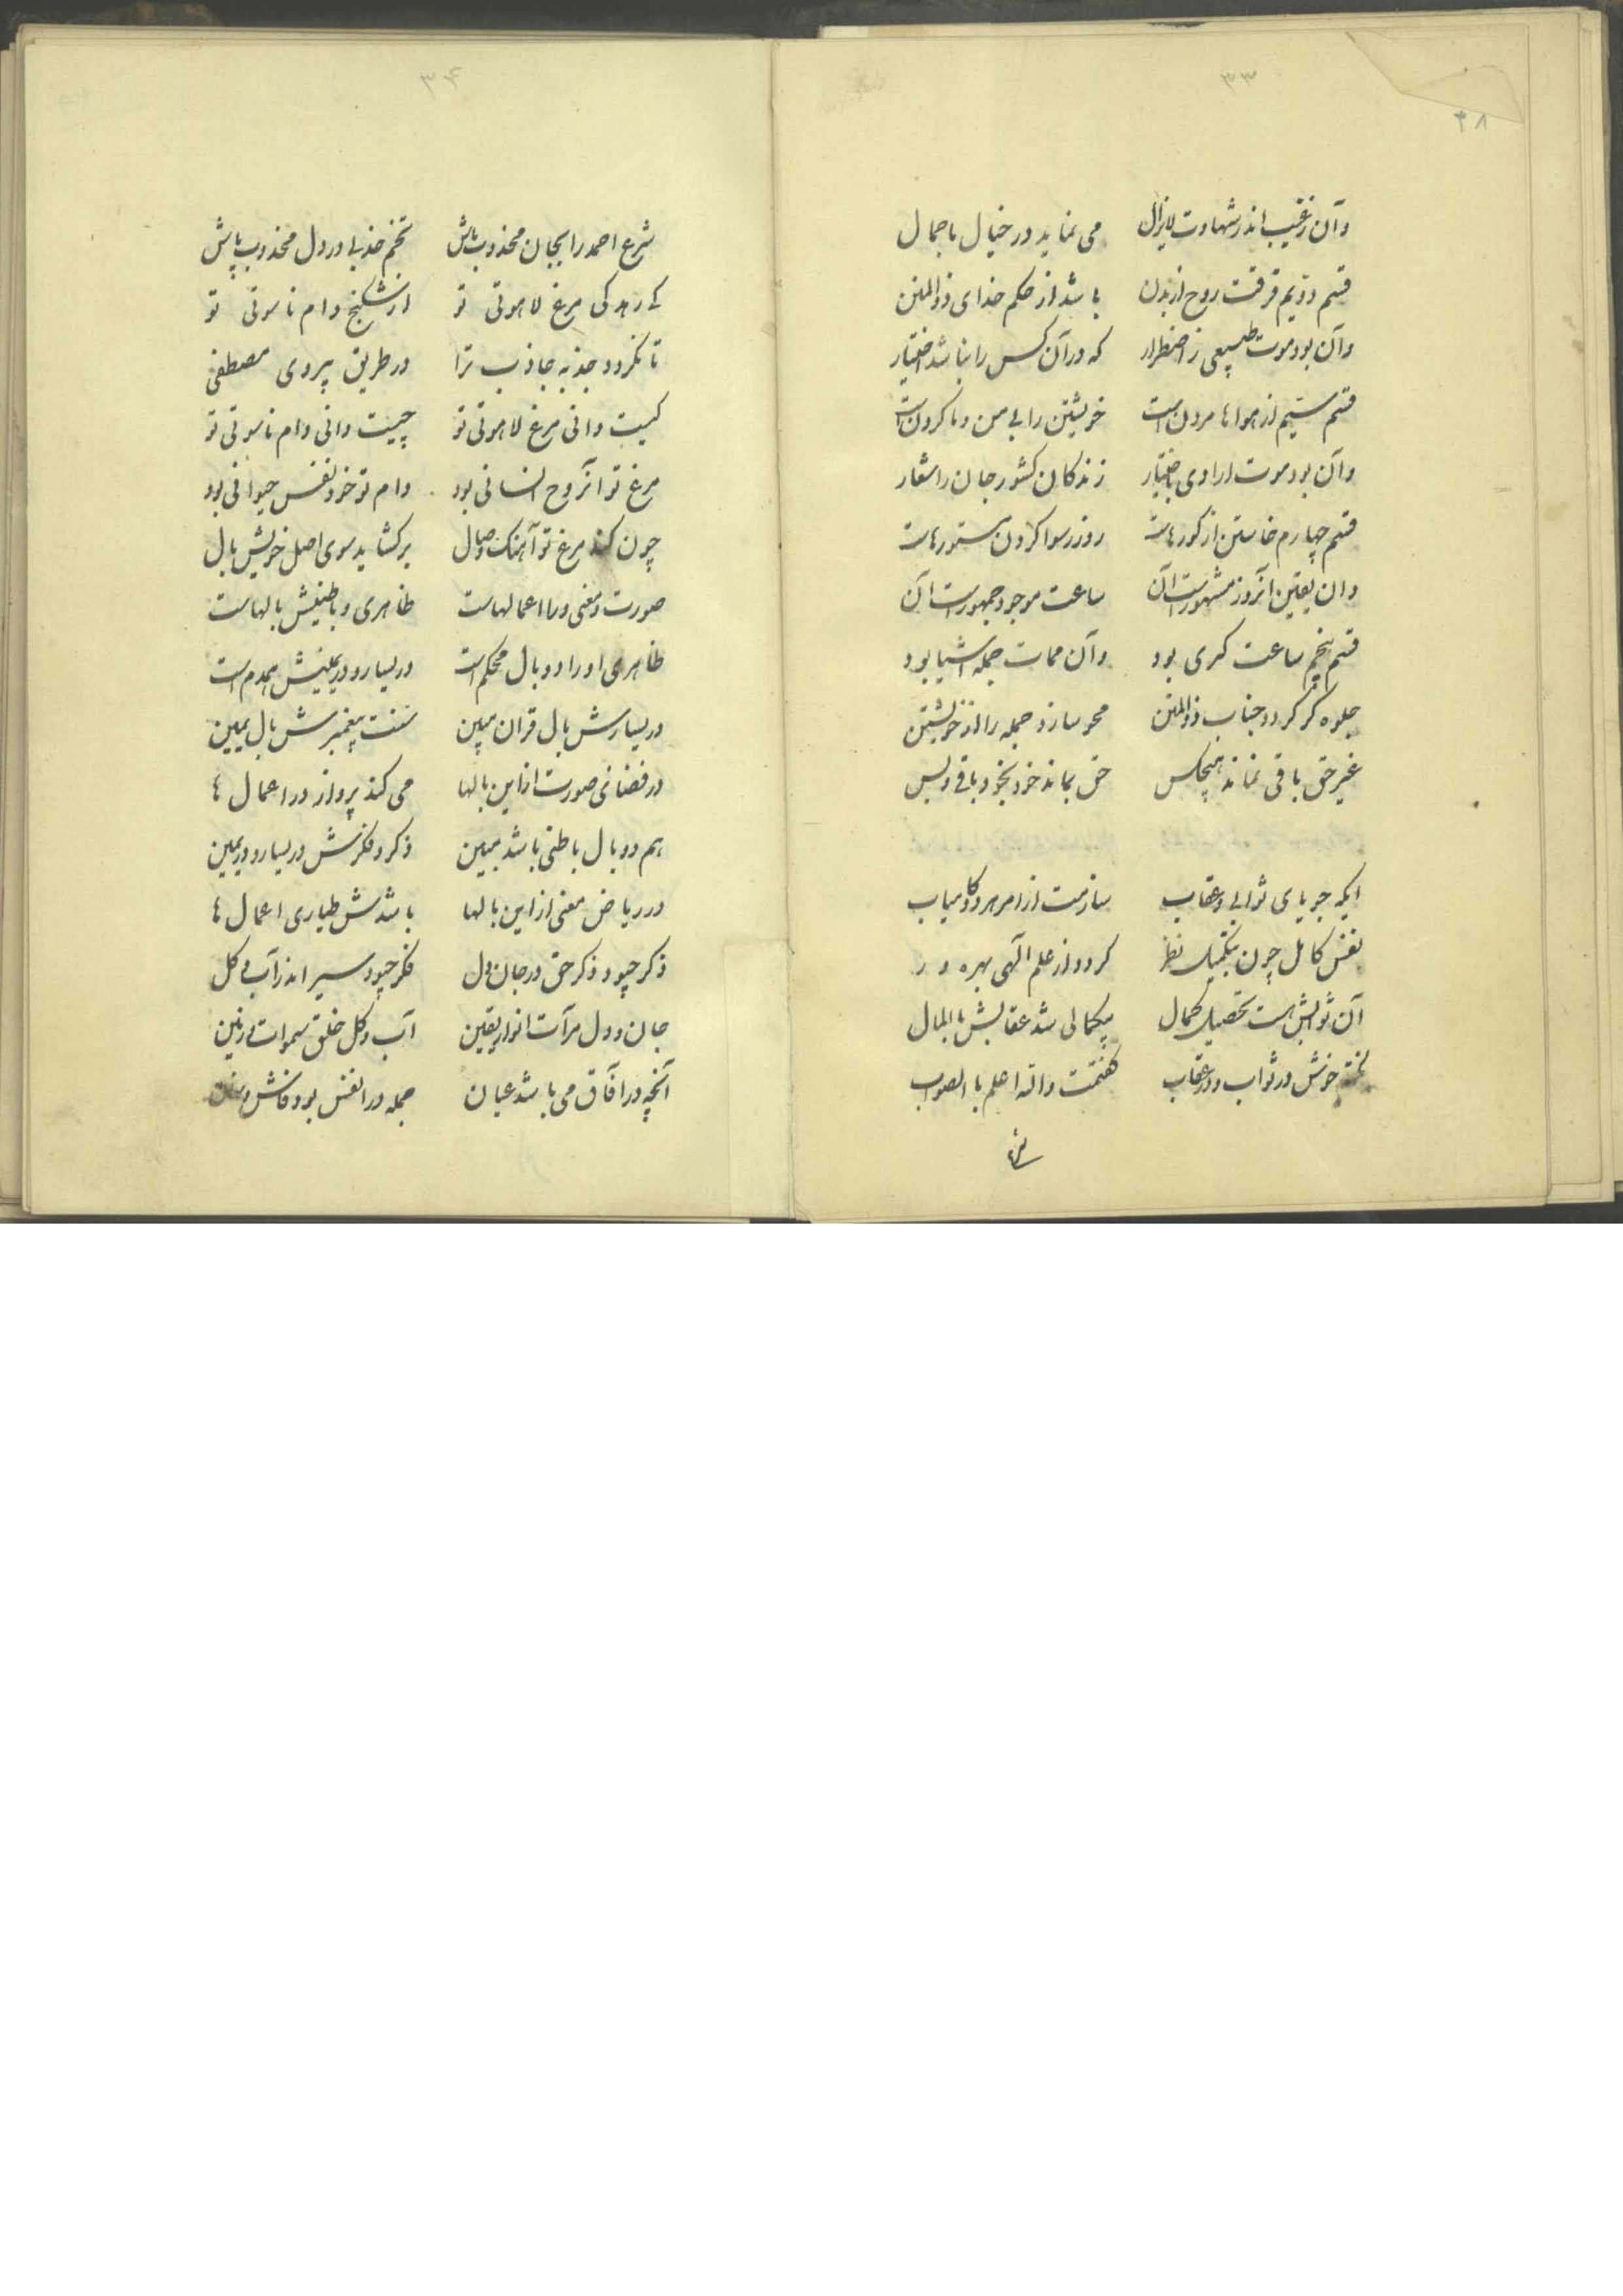 ۳۳
۳۸
وآن ز غیب اندر شهادت لایزال می نماید در خیال با جمال
قسم دویم فرقت روح از بدن باشد از حکم خدای ذوالمنن
وآن بود موت طبیعی ز اضطرار که در آن کس را نباشد اختیار
قسم سیم از هواها مردن است خویشتن را بی من و ما کردن است
وآن بود موت ارادی باختیار زندکان کشور جان را شعار
قسم چهارم خاستن از کورهاست روز رسوا کردن مستورهاست
وان یقین آنروز مشهورست آن ساعت موجود جمهورست آن
قسم پنجم ساعت کبری بود وآن ممات جمله اشیا بود
جلوه کر کردد جناب ذوالمنن محو سازد جمله را از خویشتن
غیر حق باقی نماند هیچکس حق بماند خود بخود باقی و بس
ایکه جویای ثوابی و عقاب سازمت از امر هر دو کامیاب
نفس کامل چون بتکمیل نظر کردد از علم آلهی بهره ور
آن ثوابش هست تحصیل کمال بیکمالی شد عقابش باالمال
نکته خوش در ثواب و در عقاب کفتمت والله اعلم باالصواب
۳۴
شرع احمد را بجان مجذوب باش تخم جذبی در دل مجذوب پاش
کی رهد کی مرغ لاهوتی تو از شکنج دام ناسوتی تو
تا نکردد جذبه جاذب ترا در طریق پیروی مصطفی
کیست دانی مرغ لاهوتی تو چیست دانی دام ناسوتی تو
مرغ تو آنروح انسانی بود دام تو خود نفس حیوانی بود
چون کند مرغ تو آهنک وصال برکشاید سوی اصل خویش بال
صورت و معنی ورا اعمالهاست ظاهری و باطنیش بالهاست
ظاهری او را دو بال محکم است در یسار و در یمینش همدم است
در یسارش بال قران مبین سنت پیغمبرش بال یمین
در فضای صورت از این بالها می کند پرواز در اعمال ها
هم دو بال باطنی باشد ببین ذکر و فکرش در یسار و در یمین
در ریاض معنی از این بالها باشدش طیاری اعمال ها
ذکر چبود ذکر حق در جان و دل فکر چبود سیر اندر آب و کل
جان و دل مرآت انوار یقین آب و کل خلق سموات و زمین
آنچه در آفاق می باشد عیان جمله در انفس بود فاش و